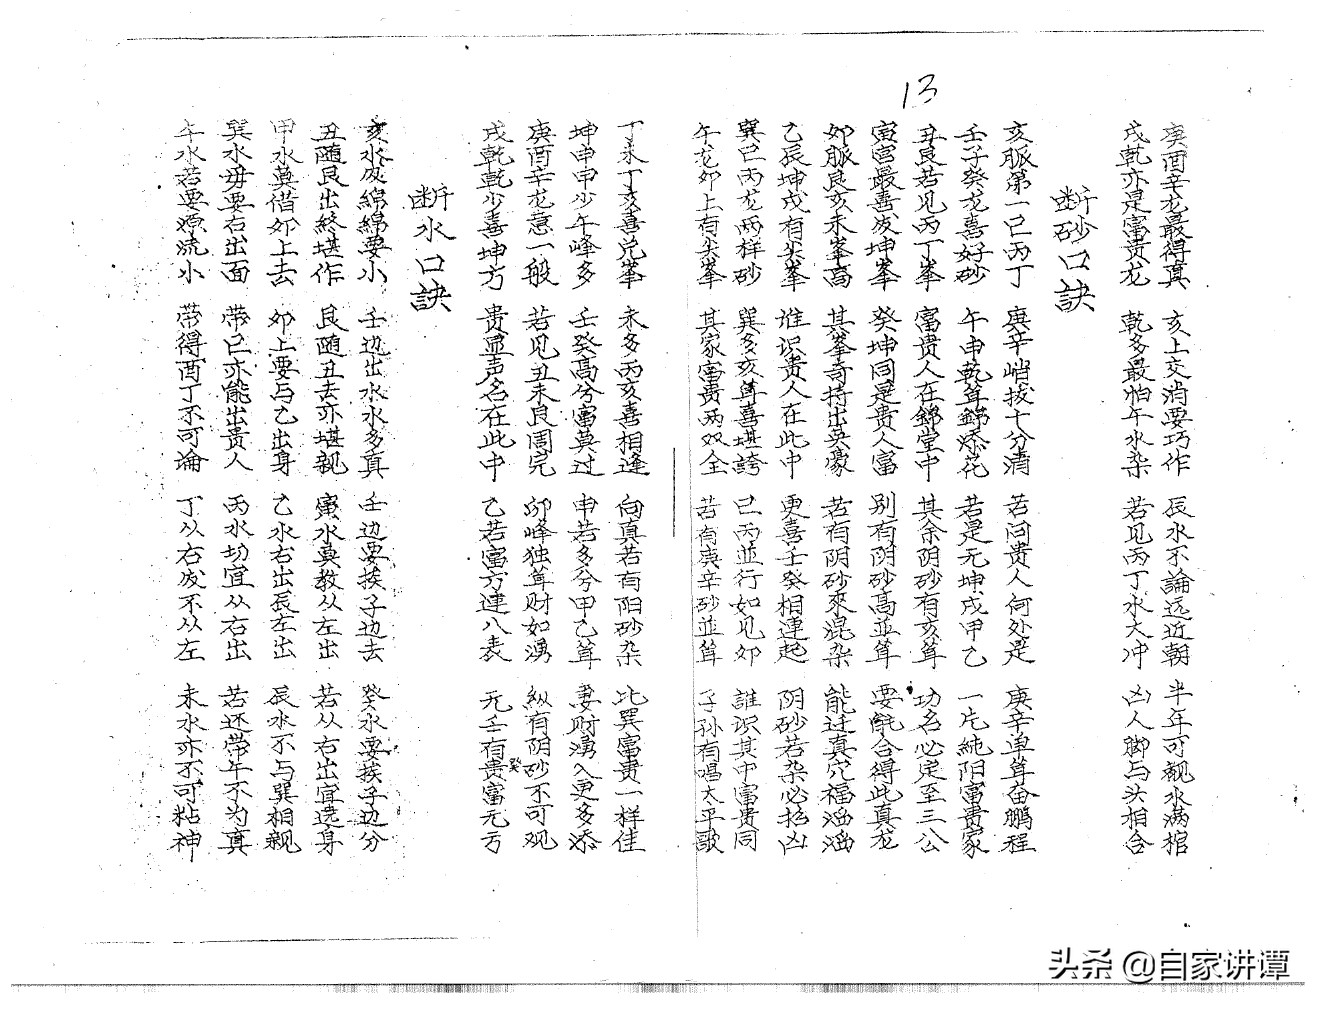 13
庚酉辛龙最得真 亥上交消要巧作 辰水不論远近朝 半年可観水满棺
戌乾亦是富贵龙 乾多最怕午水杂 若见丙丁水大冲 凶人脚与头相合
断砂口訣
亥脈第一巳丙丁 庚辛峭拔十分清 若问贵人何处是 庚辛卓耸奋鵬程
壬子癸龙喜好砂 午申乾耸錦添花 若是无坤戌甲乙 一片純阳富贵家
丑艮若见丙丁峯 富貴人在錦堂中 其余阴砂有亥耸 功名必定至三公
寅宫最喜发坤峯 癸坤同是贵人富 别有阴砂高並耸 要能合得此真龙
卯脈艮亥未峯高 其峯奇持出英豪 若有阴砂來混杂 能迁真穴福滔滔
乙辰坤戌有尖峯 谁识贵人在此中 更喜壬癸相連起 阴砂若杂必招凶
巽巳丙龙两样砂 巽多亥耸喜堪誇 巳丙並行如见卯 誰识其中富貴同
午龙卯上有尖峯 其家富贵两双全 若有庚辛砂並耸 子孙有唱太平歌
丁未丁亥喜兑峯 未多丙亥喜相逢 向真若有阳砂杂 比巽富贵一样佳
坤申申少午峰多 壬癸高兮富莫过 申若多兮甲乙耸 妻财湧入更多添
庚酉辛龙意一般 若见丑未艮周完 卯峰独耸财如湧 纵有阴砂不可观
戌乾乾少喜坤方 贵显声名在此中 乙若富方連八表 无壬有癸贵富无亏
断水口訣
亥水发綿綿要小 壬边出水水多真 壬边要挨子边去 癸水要挨子边分
丑随艮出終堪作 艮随丑去亦堪親 寅水莫教从左出 若从右出宜迭身
甲水莫借卯上去 卯上要与乙出身 乙水右出辰左出 辰水不与巽相親
巽水毋要右出面 带巳亦能出贵人 丙水切宜从右出 若还带午不为真
午水若要源流小 带得酉丁不可論 丁从右发不从左 未水亦不可粘神
头条 @自家讲谭